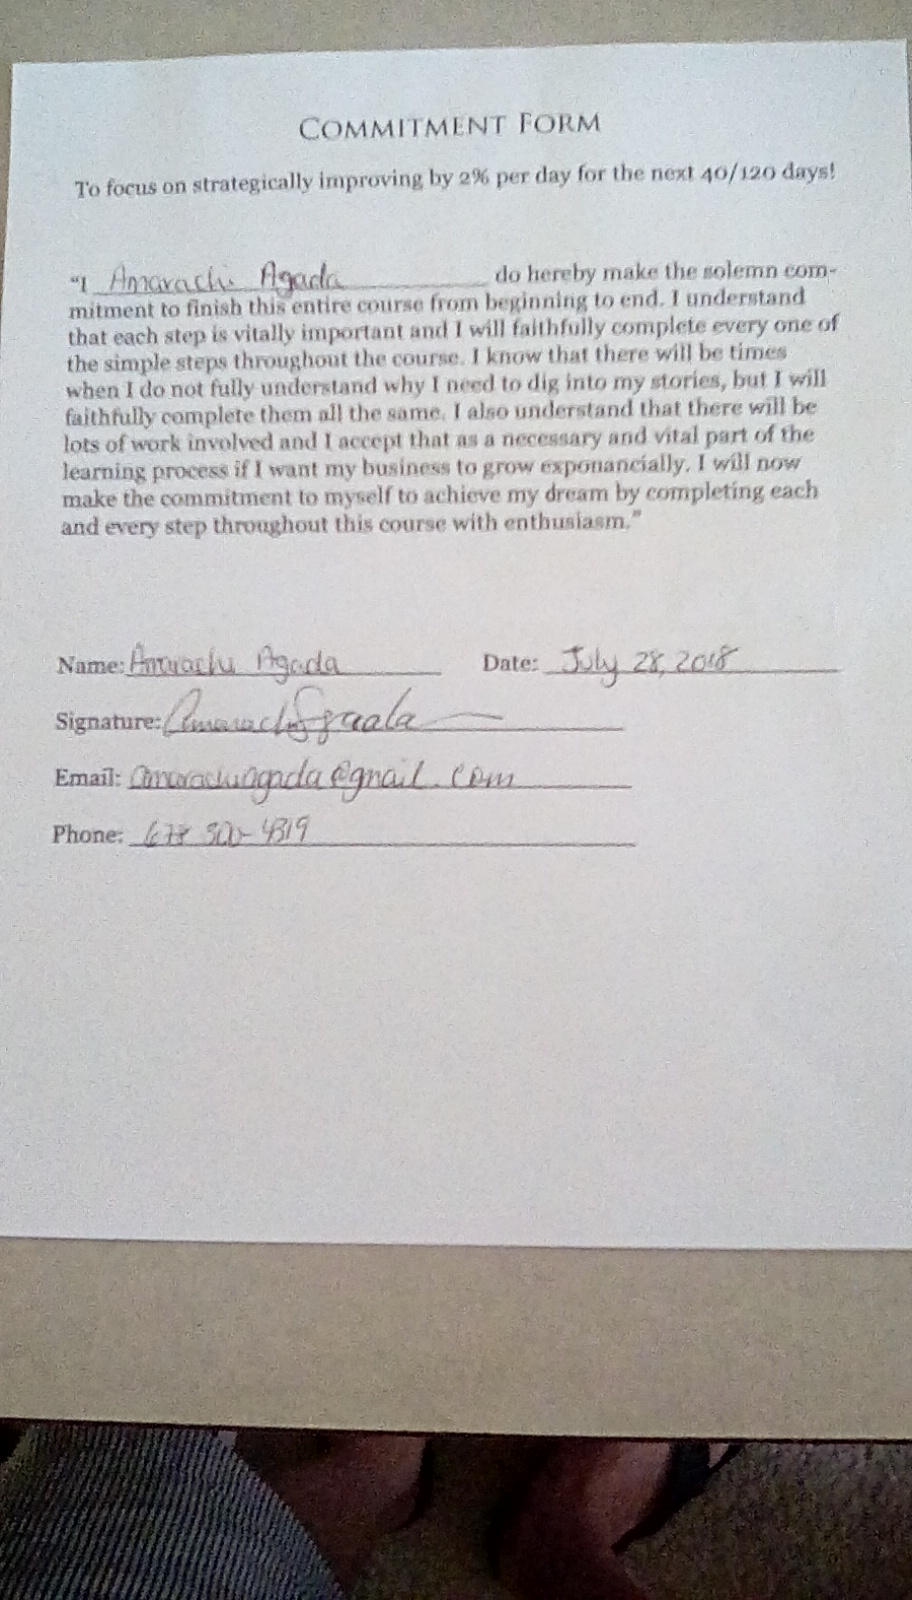 COMMITMENT FORM
To focus on strategically improving by 2% per day for the next 40/120 days!
"I Amarachi Agada do hereby make the solemn com-
mitment to finish this entire course from beginning to end. I understand
that each step is vitally important and I will faithfully complete every one of
the simple steps throughout the course. I know that there will be times
when I do not fully understand why I need to dig into my stories, but I will
faithfully complete them all the same. I also understand that there will be
lots of work involved and I accept that as a necessary and vital part of the
learning process if I want my business to grow exponancially. I will now
make the commitment to myself to achieve my dream by completing each
and every step throughout this course with enthusiasm."
Name: Amarachi Agada Date: July 28, 2018
Signature: Amarachi Agada
Email: amarachiagada@gmail.com
Phone: 4319